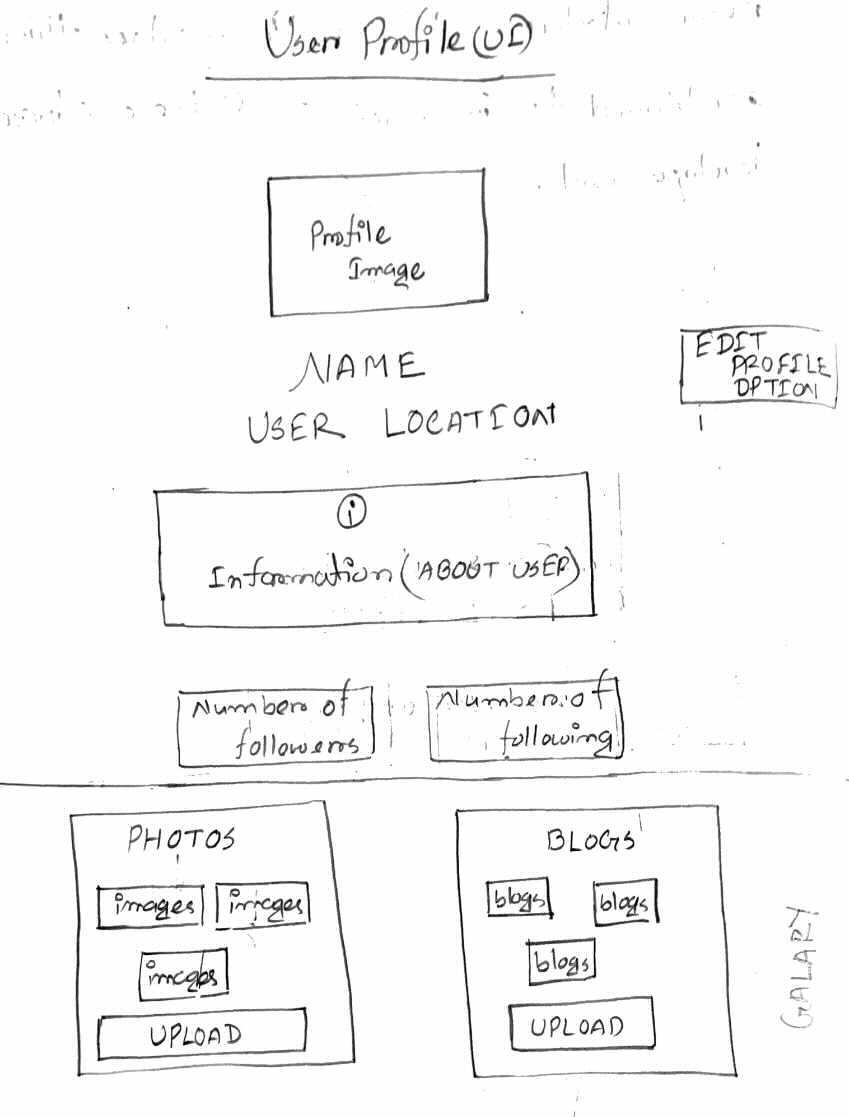 User Profile (UI)
Profile
Image
EDIT
PROFILE
OPTION
NAME
USER LOCATION
i
Information (ABOUT USER)
Number of
followers
Number of
following
PHOTOS
images images
images
UPLOAD
BLOGS
blogs blogs
blogs
UPLOAD
GALARY